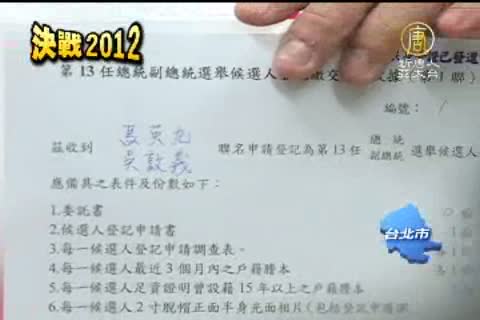 決戰2012
唐
新唐人
亞太台
第13任總統副總統選舉候選人
編號：/
茲收到 馬英九 吳敦義 聯名申請登記為第13任 總統 副總統 選舉候選人
應備具之表件及份數如下：
1.委託書
2.候選人登記申請書
3.每一候選人登記申請調查表。
4.每一候選人最近3個月內之戶籍謄本
5.每一候選人足資證明曾設籍15年以上之戶籍謄本
6.每一候選人2寸脫帽正面半身光面相片(包括登記申請
台北市